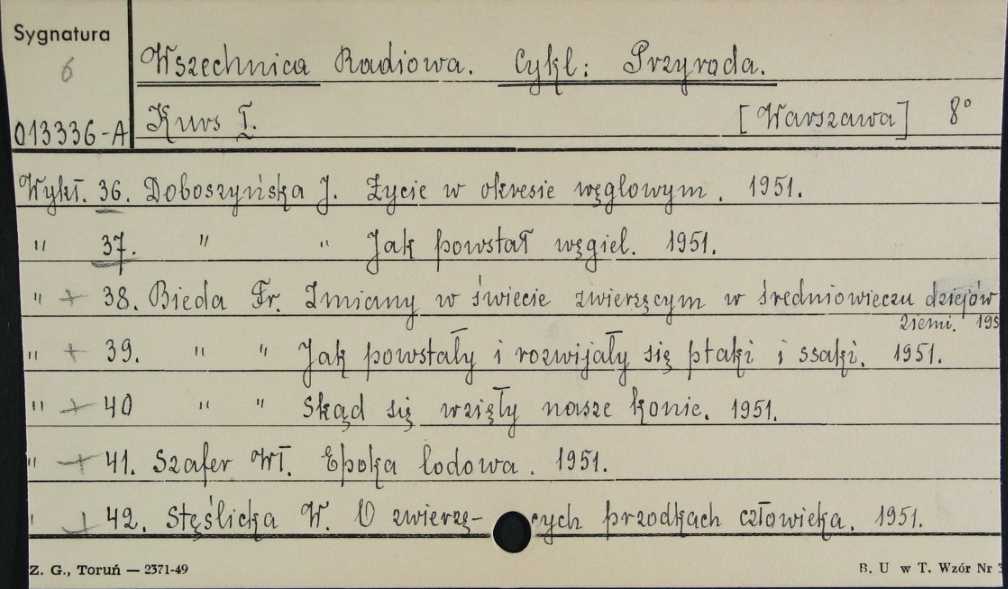 Sygnatura
6
013336-A
Wszechnica Radiowa. Cykl: Przyroda.
Kurs I. [Warszawa] 8°
Wykł. 36. Doboszyńska J. Życie w okresie węglowym. 1951.
" 37. " " Jak powstał węgiel. 1951.
" + 38. Bieda Fr. Zmiany w świecie zwierzęcym w średniowieczu dziejów
Ziemi. 195
" + 39. " " Jak powstały i rozwijały się ptaki i ssaki. 1951.
" + 40 " " Skąd się wzięły nasze konie. 1951.
" + 41. Szafer Wł. Epoka lodowa. 1951.
" + 42. Stęślicka W. O zwierzę- cych przodkach człowieka. 1951.
Z. G., Toruń — 2371-49 B. U w T. Wzór Nr